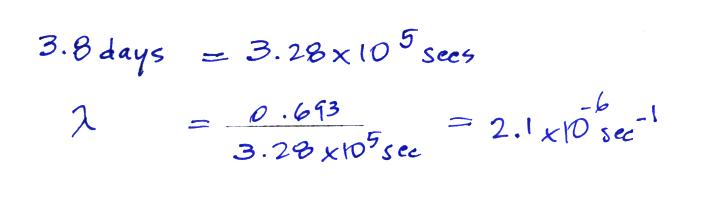 3.8 days = 3.28 x 10⁵ secs
λ = 0.693 / 3.28 x 10⁵ sec = 2.1 x 10⁻⁶ sec⁻¹